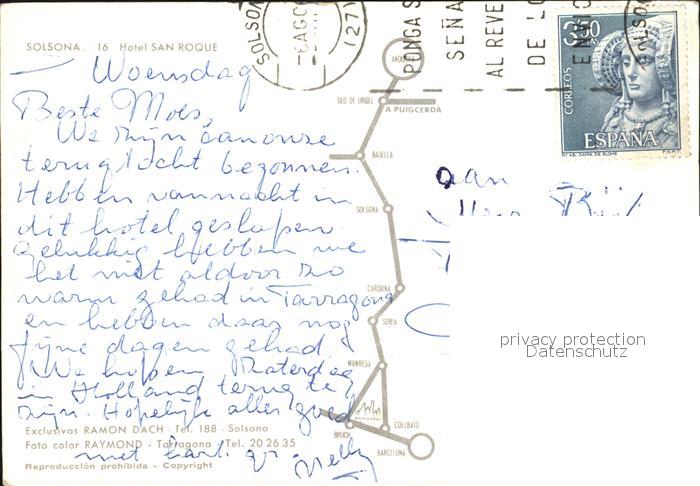 SOLSONA. 16 Hotel SAN ROQUE
Woensdag
Beste Moes,
We zijn aan onze
terugtocht begonnen.
Hebben vannacht in
dit hotel geslapen.
Gelukkig hebben we
het niet aldoor zo
warm gehad in Tarragona
en hebben daar nog
fijne dagen gehad.
We hopen Zaterdag
in Holland terug te
zijn. Hopelijk alles goed
met hart. gr. Nelly
Exclusivas RAMON DACH - Tel. 188 - Solsona
Foto color RAYMOND - Tarragona - Tel. 20 26 35
Reproducción prohibida - Copyright
SEO DE URGEL
A PUIGCERDA
BASELLA
SOLSONA
CARDONA
SURIA
MANRESA
BRUCH
COLLBATO
BARCELONA
SOLSONA
AGO
(27)
PONGA S
SEÑA
AL REVE
DE LO
ENVIO
3,50
CORREOS
ESPAÑA
DAMA DE ELCHE
F.N.M.T.
aan
privacy protection
Datenschutz